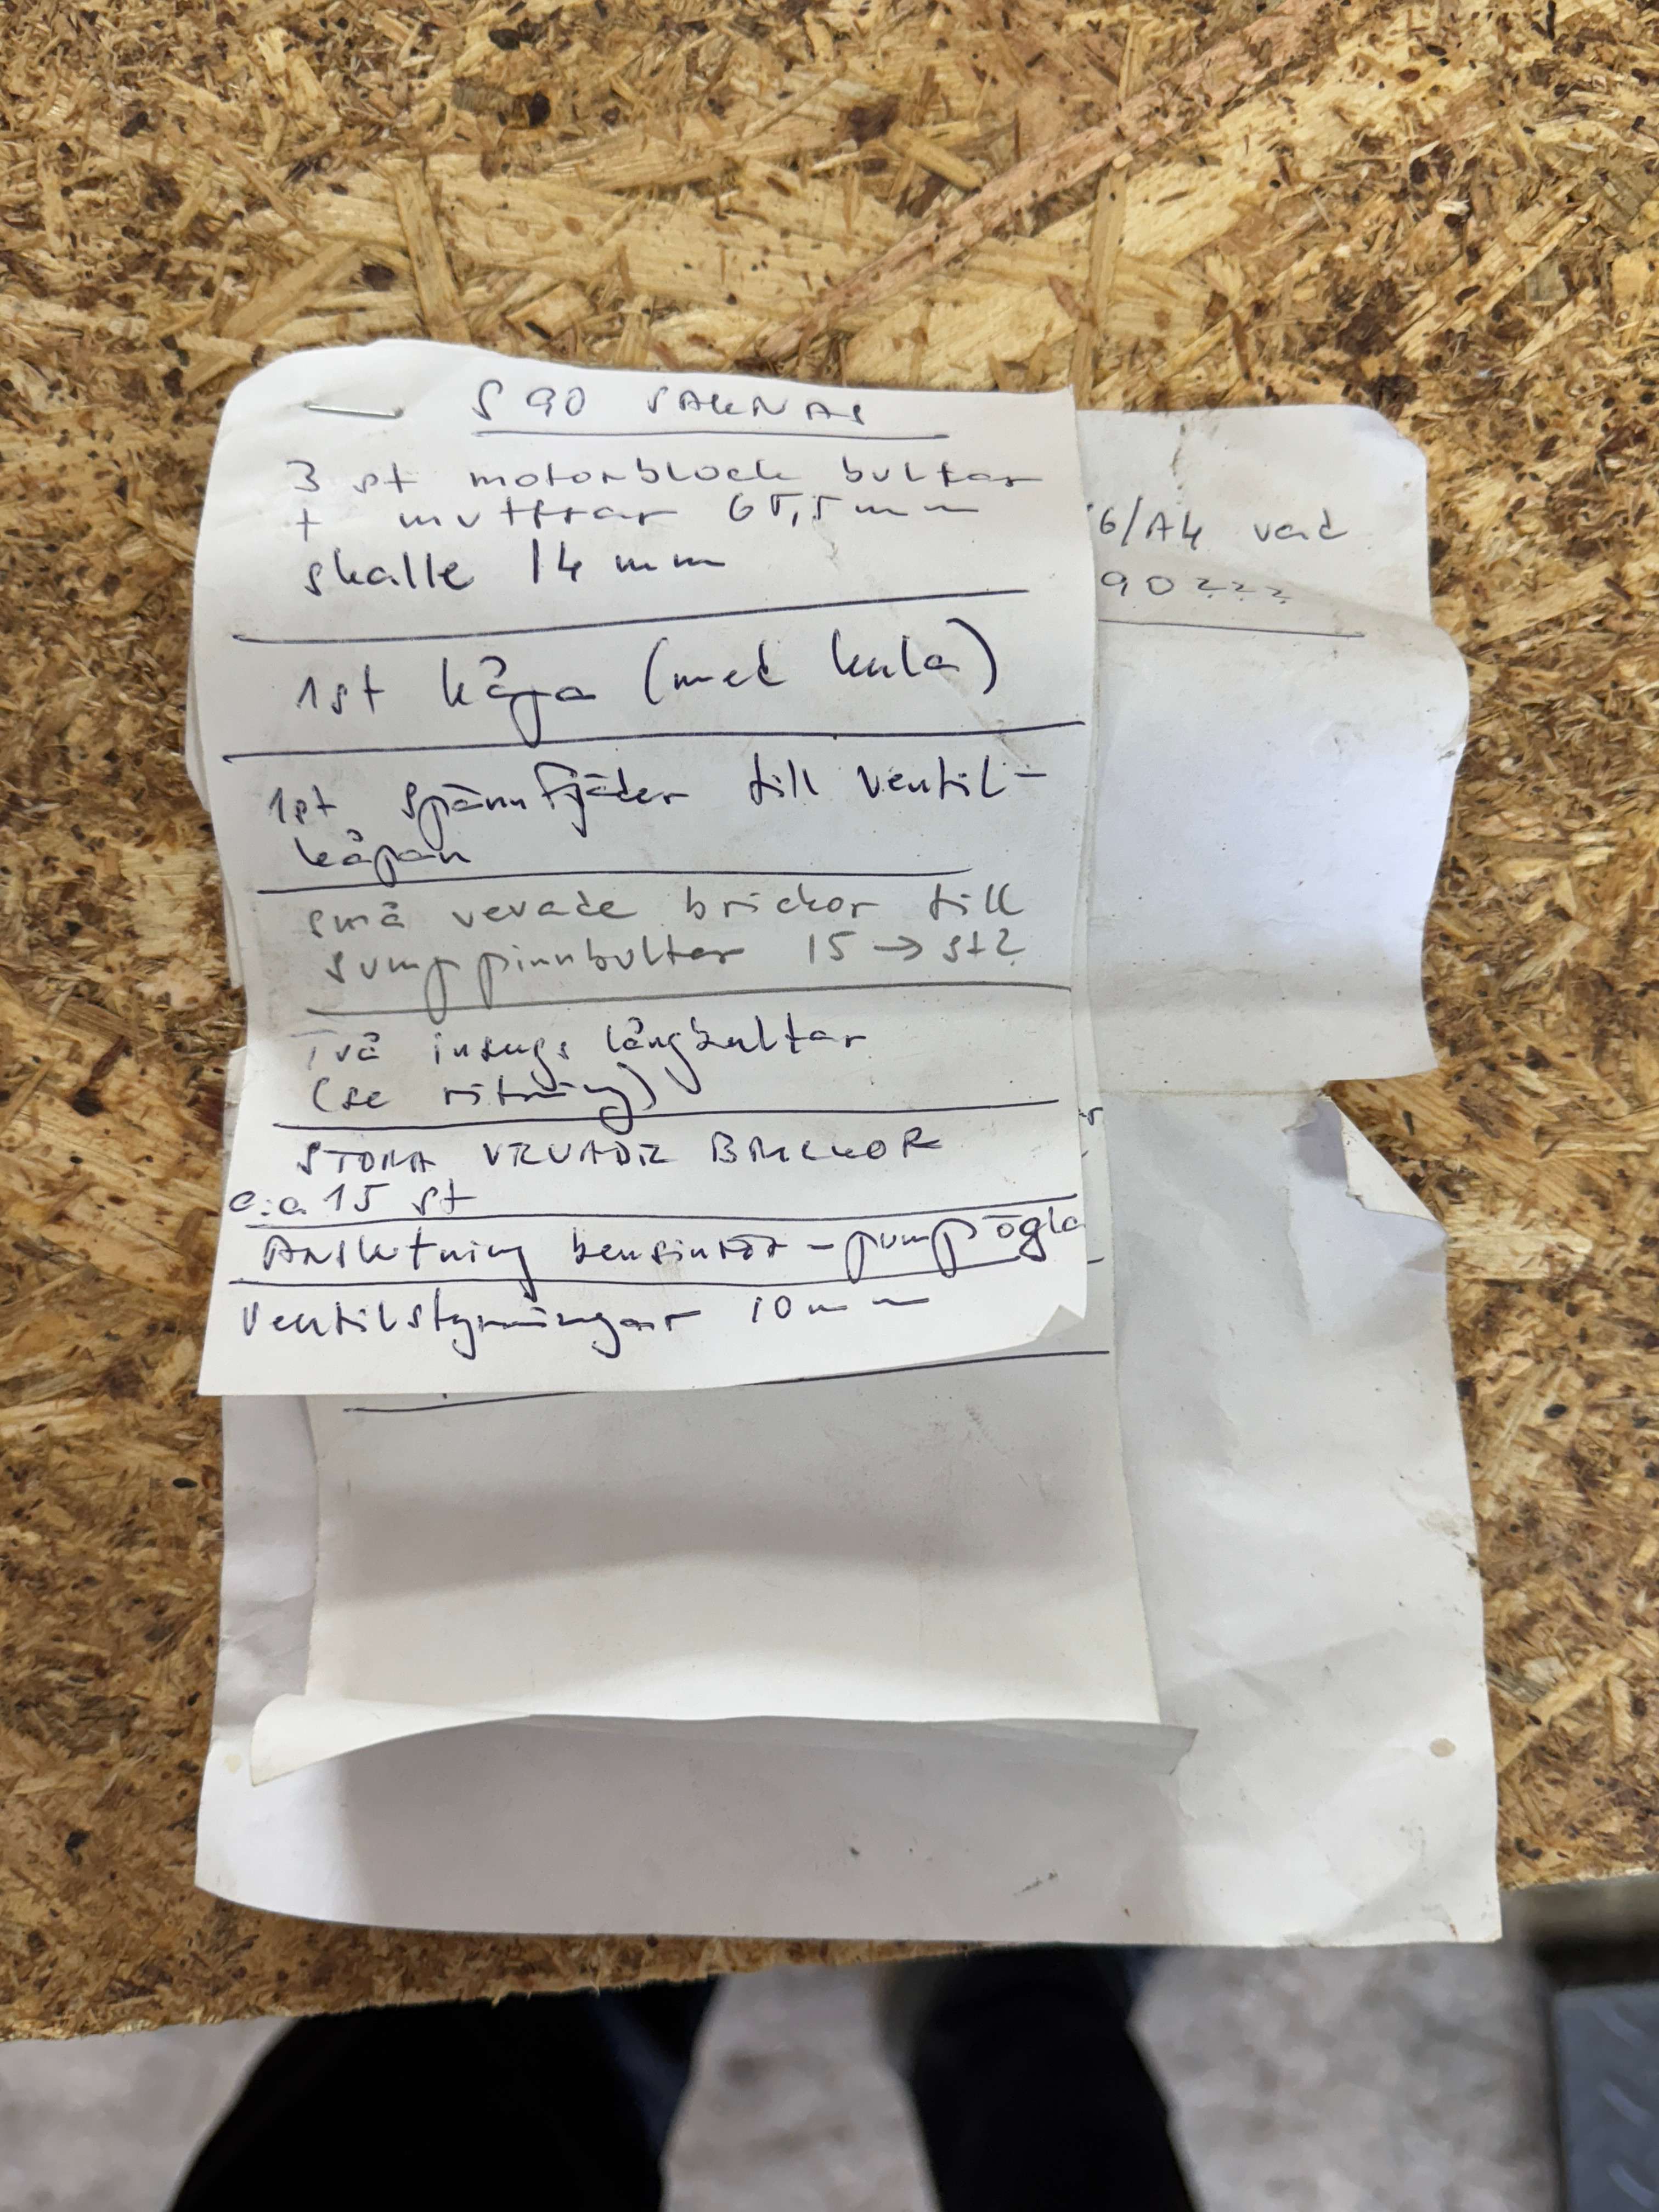 S 90 SAKNAS
3 st motorblock bultar
+ muttrar 65,5 mm
skalle 14 mm
1st kåpa (med kula)
1st spännfjäder till ventil-
kåpan
små vevade brickor till
sumppinnbultar 15 → st?
Två insugs långbultar
(se ritning)
STORA VEVADE BRICKOR
c:a 15 st
Anslutning bensinrör - pumpögla
Ventilstyrningar 10 mm
6/A4 vad
90???